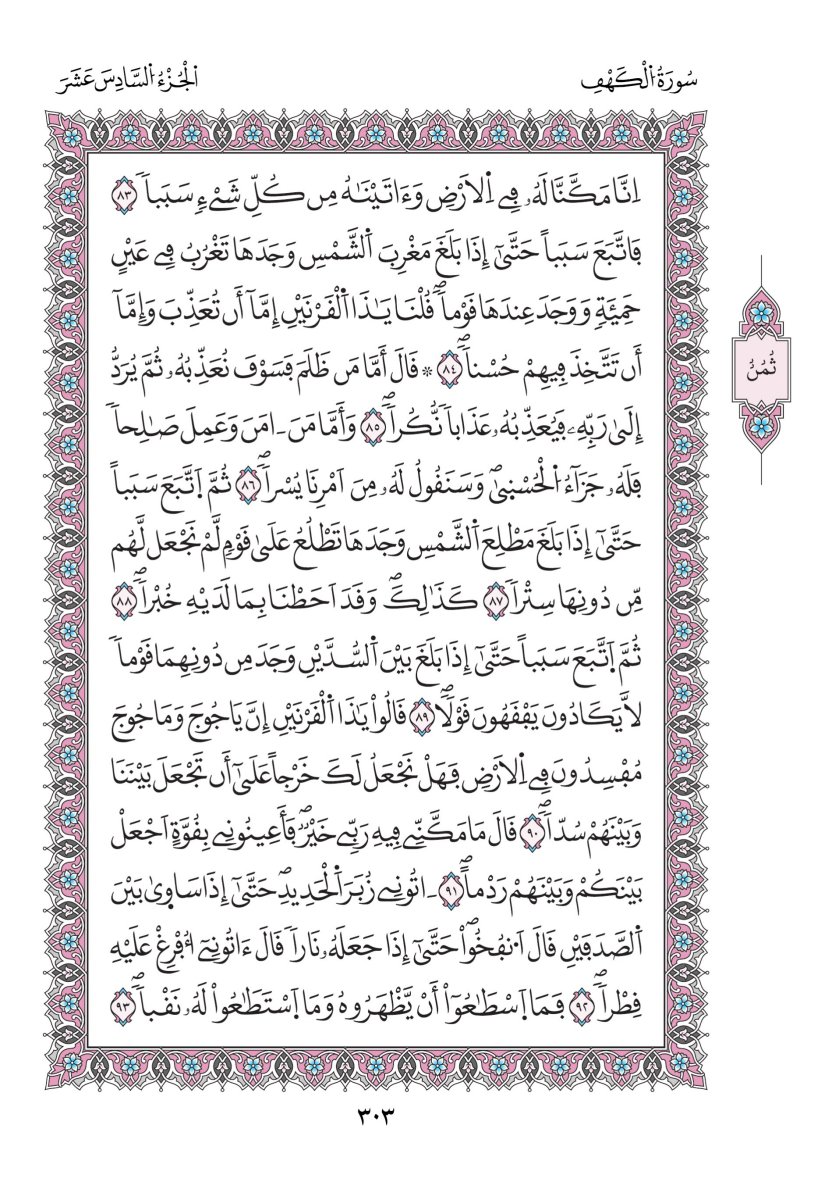 سُورَةُ اُ۬لْكَهْفِ
اَ۬لْجُزْءُ اُ۬لسَّادِسَ عَشَرَ
اِنَّا مَكَّنَّا لَهُۥ فِے اِ۬لَارْضِ وَءَاتَيْنَٰهُ مِن كُلِّ شَےْءٖ سَبَباٗ ٨٣
فَاتَّبَعَ سَبَباً حَتَّىٰٓ إِذَا بَلَغَ مَغْرِبَ اَ۬لشَّمْسِ وَجَدَهَا تَغْرُبُ فِے عَيْنٍ
حَمِئَةٖ وَوَجَدَ عِندَهَا قَوْماٗۖ قُلْنَا يَٰذَا اَ۬لْقَرْنَيْنِ إِمَّآ أَن تُعَذِّبَ وَإِمَّآ
أَن تَتَّخِذَ فِيهِمْ حُسْناٗۖ ٨٤ ۞ قَالَ أَمَّا مَن ظَلَمَ فَسَوْفَ نُعَذِّبُهُۥ ثُمَّ يُرَدُّ
إِلَىٰ رَبِّهِۦ فَيُعَذِّبُهُۥ عَذَاباٗ نُّكُراٗۖ ٨٥ وَأَمَّا مَنَ ـ امَنَ وَعَمِلَ صَٰلِحاٗ
فَلَهُۥ جَزَآءُ اُ۬لْحُسْنَىٰۖ وَسَنَقُولُ لَهُۥ مِنَ اَمْرِنَا يُسْراٗۖ ٨٦ ثُمَّ اَ۪تَّبَعَ سَبَباً
حَتَّىٰٓ إِذَا بَلَغَ مَطْلِعَ اَ۬لشَّمْسِ وَجَدَهَا تَطْلُعُ عَلَىٰ قَوْمٖ لَّمْ نَجْعَل لَّهُم
مِّن دُونِهَا سِتْراٗۖ ٨٧ كَذَٰلِكَۖ وَقَدَ اَحَطْنَا بِمَا لَدَيْهِ خُبْراٗۖ ٨٨
ثُمَّ اَ۪تَّبَعَ سَبَباً حَتَّىٰٓ إِذَا بَلَغَ بَيْنَ اَ۬لسُّدَّيْنِ وَجَدَ مِن دُونِهِمَا قَوْماٗ
لَّا يَكَادُونَ يَفْقَهُونَ قَوْلاٗۖ ٨٩ قَالُواْ يَٰذَا اَ۬لْقَرْنَيْنِ إِنَّ يَاجُوجَ وَمَاجُوجَ
مُفْسِدُونَ فِے اِ۬لَارْضِ فَهَلْ نَجْعَلُ لَكَ خَرْجاً عَلَىٰٓ أَن تَجْعَلَ بَيْنَنَا
وَبَيْنَهُمْ سُدّاٗۖ ٩٠ قَالَ مَا مَكَّنِّے فِيهِ رَبِّے خَيْرٞۖ فَأَعِينُونِے بِقُوَّةٍ اَجْعَلْ
بَيْنَكُمْ وَبَيْنَهُمْ رَدْماًۖ ٩١ ـ اتُونِے زُبَرَ اَ۬لْحَدِيدِۖ حَتَّىٰٓ إِذَا سَاو۪ىٰ بَيْنَ
اَ۬لصَّدَفَيْنِ قَالَ اَ۟نفُخُواْۖ حَتَّىٰٓ إِذَا جَعَلَهُۥ نَاراٗ قَالَ ءَاتُونِےٓ أُفْرِغْ عَلَيْهِ
قِطْراٗۖ ٩٢ فَمَا اَ۪سْطَٰعُوٓاْ أَنْ يَّظْهَرُوهُ وَمَا اَ۪سْتَطَٰعُواْ لَهُۥ نَقْباٗۖ ٩٣
ثُمُنُ
٣٠٣